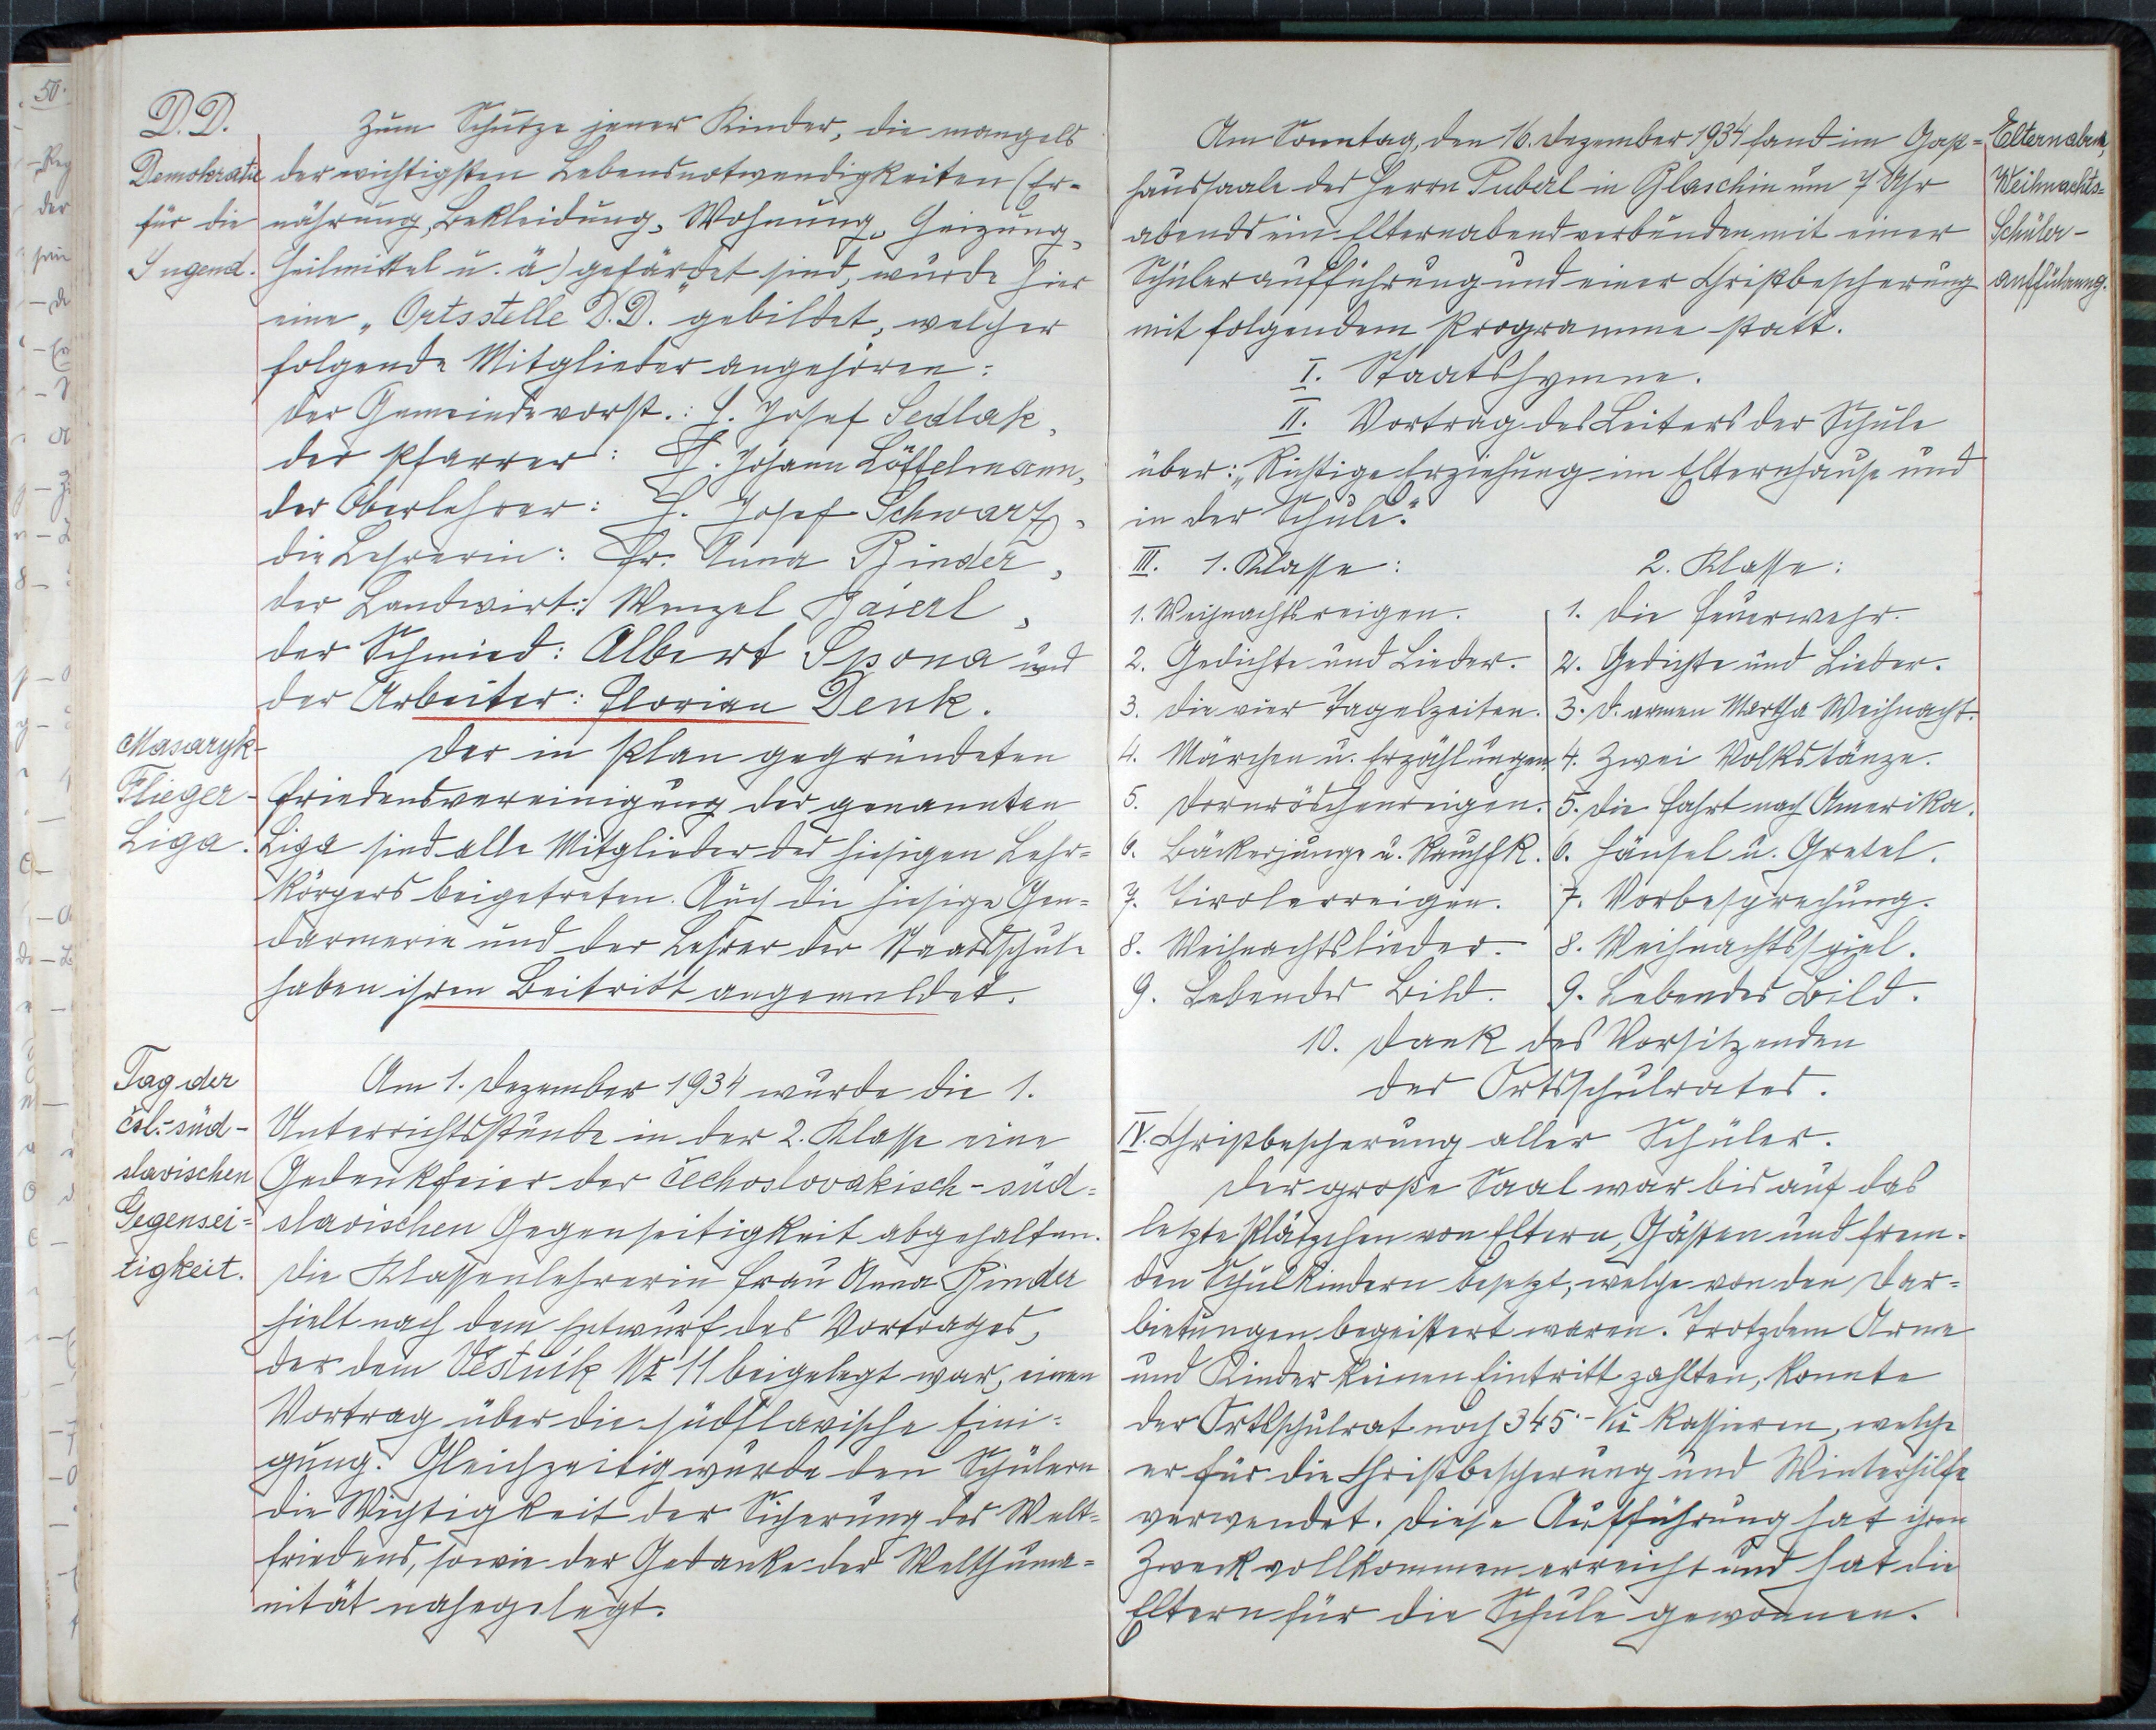 D.D.
Demokratie
für die
Jugend.
Zum Schutze jener Kinder, die mangels
der wichtigsten Lebensnotwendigkeiten (Er-
nährung, Bekleidung, Wohnung, Heizung,
Heilmittel u. ä.) gefärdet sind, wurde hier
eine „Ortsstelle D.D." gebildet, welcher
folgende Mitglieder angehören:
der Gemeindevorst.: H. Josef Sedlak,
der Pfarrer: H. Johann Löffelmann,
der Oberlehrer: H. Josef Schwarz,
die Lehrerin: Fr. Anna Binder,
der Landwirt: Wenzel Baierl,
der Schmied: Albert Spona und
der Arbeiter: Florian Denk.
Masaryk-
Flieger-
Liga.
Der in Plan gegründeten
Friedensvereinigung der genannten
Liga sind alle Mitglieder des hiesigen Lehr=
körpers beigetreten. Auch die hiesige Gen=
darmerie und der Lehrer der Staatsschule
haben ihren Beitritt angemeldet.
Tag der
čsl.-süd-
slavischen
Gegensei=
tigkeit.
Am 1. Dezember 1934 wurde die 1.
Unterrichtsstunde in der 2. Klasse eine
Gedenkfeier der čechoslovakisch-süd=
slavischen Gegenseitigkeit abgehalten.
Die Klassenlehrerin Frau Anna Binder
hielt nach dem Entwurf des Vortrages,
der dem Věstník Nr 11 beigelegt war, einen
Vortrag über die südslavische Eini=
gung. Gleichzeitig wurde den Schülern
die Wichtigkeit der Sicherung des Welt=
friedens, sowie der Gedanke der Welthuma=
nität nahegelegt.
Am Sonntag, den 16. Dezember 1934 fand im Gast=
haussaale des Herrn Puberl in Glaschin um 7 Uhr
abends ein Elternabend verbunden mit einer
Schüleraufführung und einer Christbescherung
mit folgendem Programme statt.
Elternabend,
Weihnachts=
Schüler-
aufführung.
I. Staatshymne.
II. Vortrag des Leiters der Schule
über: „Richtige Erziehung im Elternhause und
in der Schule."
III. 1. Klasse: 2. Klasse:
1. Weihnachtsreigen. 1. Die Feuerwehr.
2. Gedichte und Lieder. 2. Gedichte und Lieder.
3. Die vier Tageszeiten. 3. D. armen Martha Weihnacht.
4. Märchen u. Erzählungen. 4. Zwei Volkstänze.
5. Dornröschenreigen. 5. Die Fahrt nach Amerika.
6. Bäckerjunge u. Rauchfk. 6. Hänsel u. Gretel.
7. Tirolerreigen. 7. Vorbesprechung.
8. Weihnachtslieder. 8. Weihnachtsspiel.
9. Lebendes Bild. 9. Lebendes Bild.
10. Dank des Vorsitzenden
des Ortsschulrates.
IV. Christbescherung aller Schüler.
Der große Saal war bis auf das
letzte Plätzchen von Eltern, Gästen und frem=
den Schulkindern besetzt, welche von den Dar=
bietungen begeistert waren. Trotzdem Arme
und Kinder keinen Eintritt zahlten, konnte
der Ortsschulrat noch 345·- Kč kassieren, welche
er für die Christbescherung und Winterhilfe
verwendet. Diese Aufführung hat ihren
Zweck vollkommen erreicht und hat die
Eltern für die Schule gewonnen.